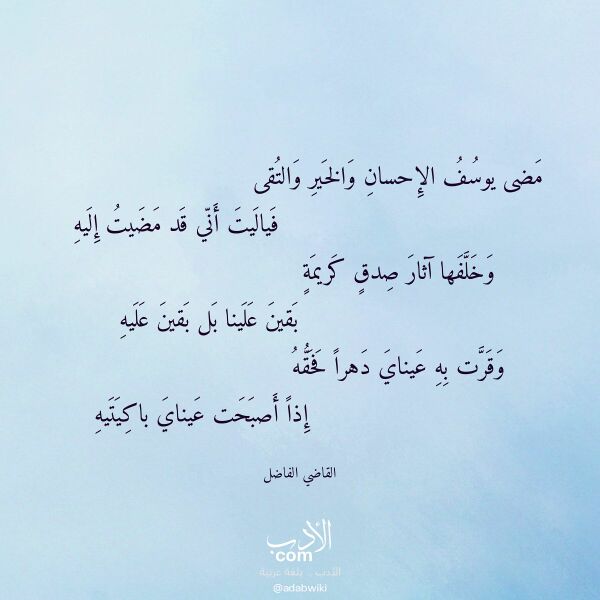 مَضى يوسُفُ الإِحسانِ وَالخَيرِ وَالتُقى
فَيالَيتَ أَنّي قَد مَضَيتُ إِلَيهِ
وَخَلَّفَها آثارَ صِدقٍ كَريمَةٍ
بَقينَ عَلَينا بَل بَقينَ عَلَيهِ
وَقَرَّت بِهِ عَينايَ دَهراً فَحَقُّهُ
إِذاً أَصبَحَت عَينايَ باكِيَتَيهِ
القاضي الفاضل
الأدب
com
الأدب .. بلغة عربية
@adabwiki